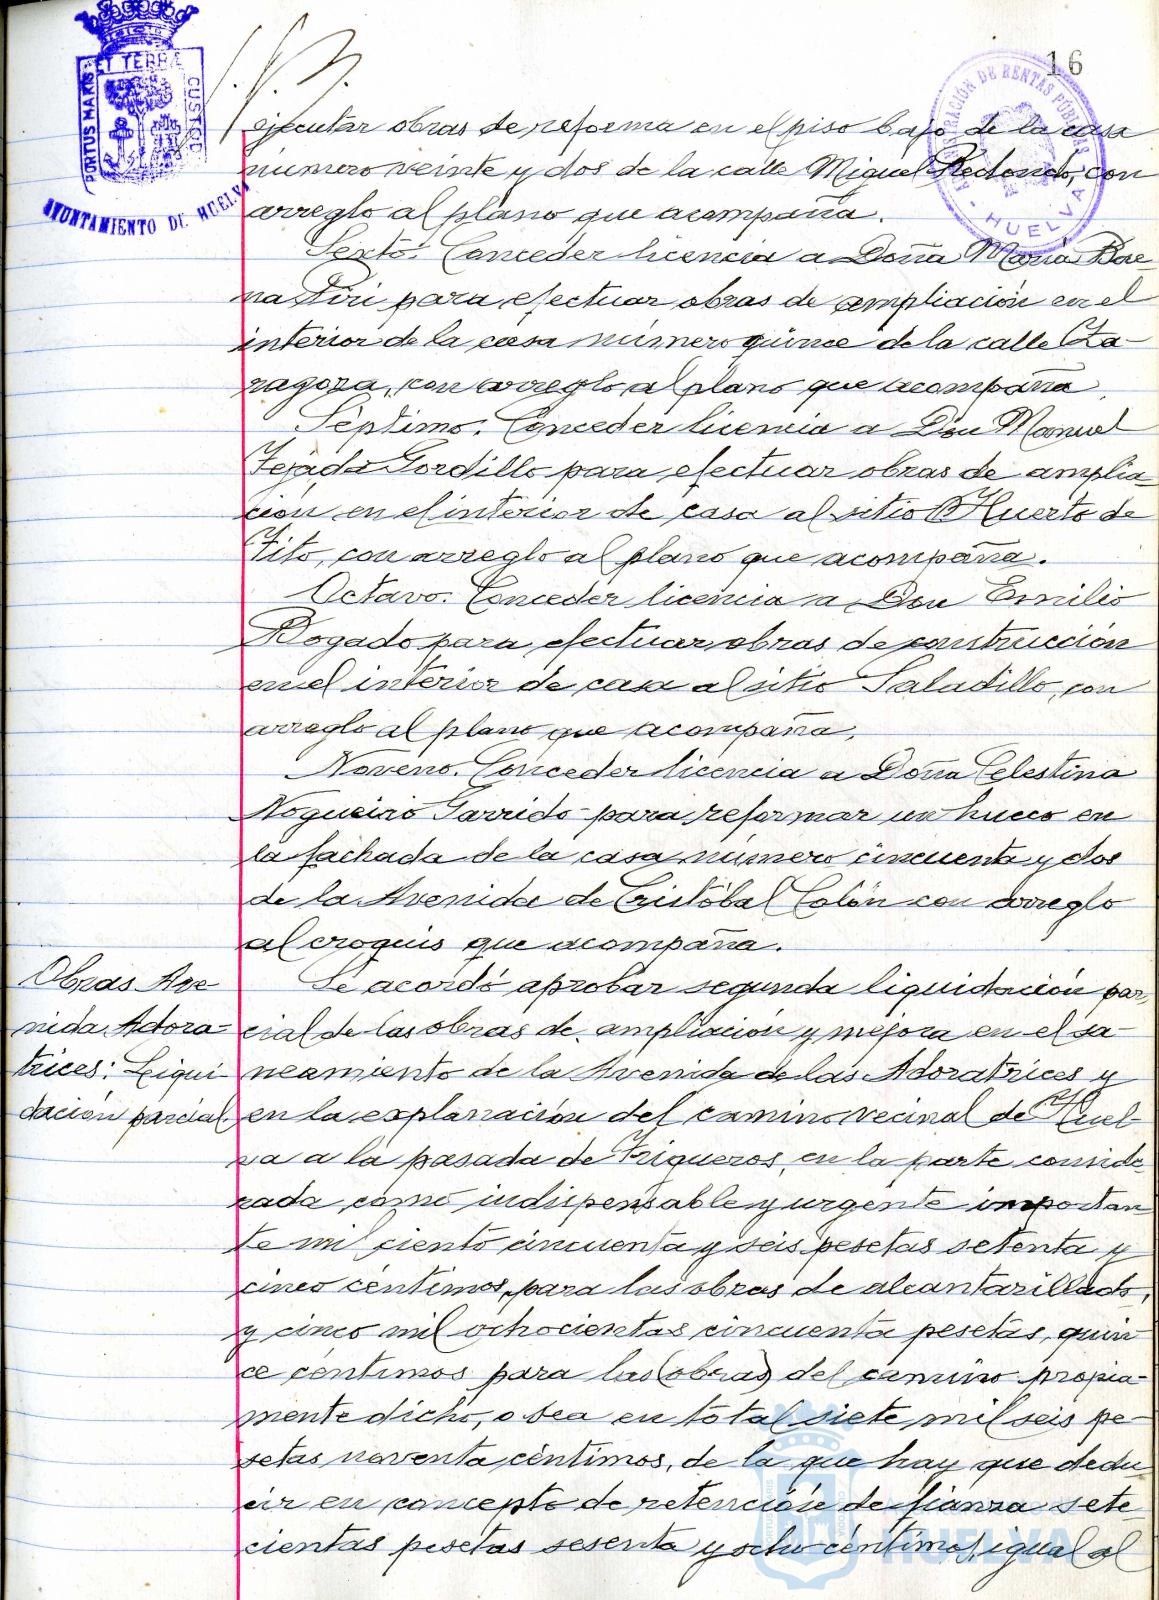 16
PORTUS MARIS ET TERRÆ CUSTOD
AYUNTAMIENTO DE HUELVA
ADMINISTRACIÓN DE RENTAS PÚBLICAS
- HUELVA -
ejecutar obras de reforma en el piso bajo de la casa
número veinte y dos de la calle Miguel Redondo, con
arreglo al plano que acompaña.
Sexto. Conceder licencia a Doña María Bae-
na Tiri para efectuar obras de ampliación en el
interior de la casa número quince de la calle Za-
ragoza, con arreglo al plano que acompaña.
Séptimo. Conceder licencia a Don Manuel
Tejada Gordillo para efectuar obras de amplia-
ción en el interior de casa al sitio Huerto de
Tito, con arreglo al plano que acompaña.
Octavo. Conceder licencia a Don Emilio
Bogado para efectuar obras de construcción
en el interior de casa al sitio Saladillo, con
arreglo al plano que acompaña.
Noveno. Conceder licencia a Doña Celestina
Nogueiro Garrido para reformar un hueco en
la fachada de la casa número cincuenta y dos
de la Avenida de Cristóbal Colón con arreglo
al croquis que acompaña.
Obras Ave
nida Adora-
trices: Liqui-
dación parcial.
Se acordó aprobar segunda liquidación par-
cial de las obras de ampliación y mejora en el sa-
neamiento de la Avenida de las Adoratrices y
en la explanación del camino vecinal de Huel-
va a la pasada de Trigueros, en la parte conside-
rada como indispensable y urgente importan
te mil ciento cincuenta y seis pesetas setenta y
cinco céntimos, para las obras de alcantarillado,
y cinco mil ochocientas cincuenta pesetas, quin
ce céntimos para las (obras) del camino propia-
mente dicho, o sea en total siete mil seis pe-
setas noventa céntimos, de la que hay que dedu
cir en concepto de retención de fianza sete-
cientas pesetas sesenta y ocho céntimos, igual al
HUELVA